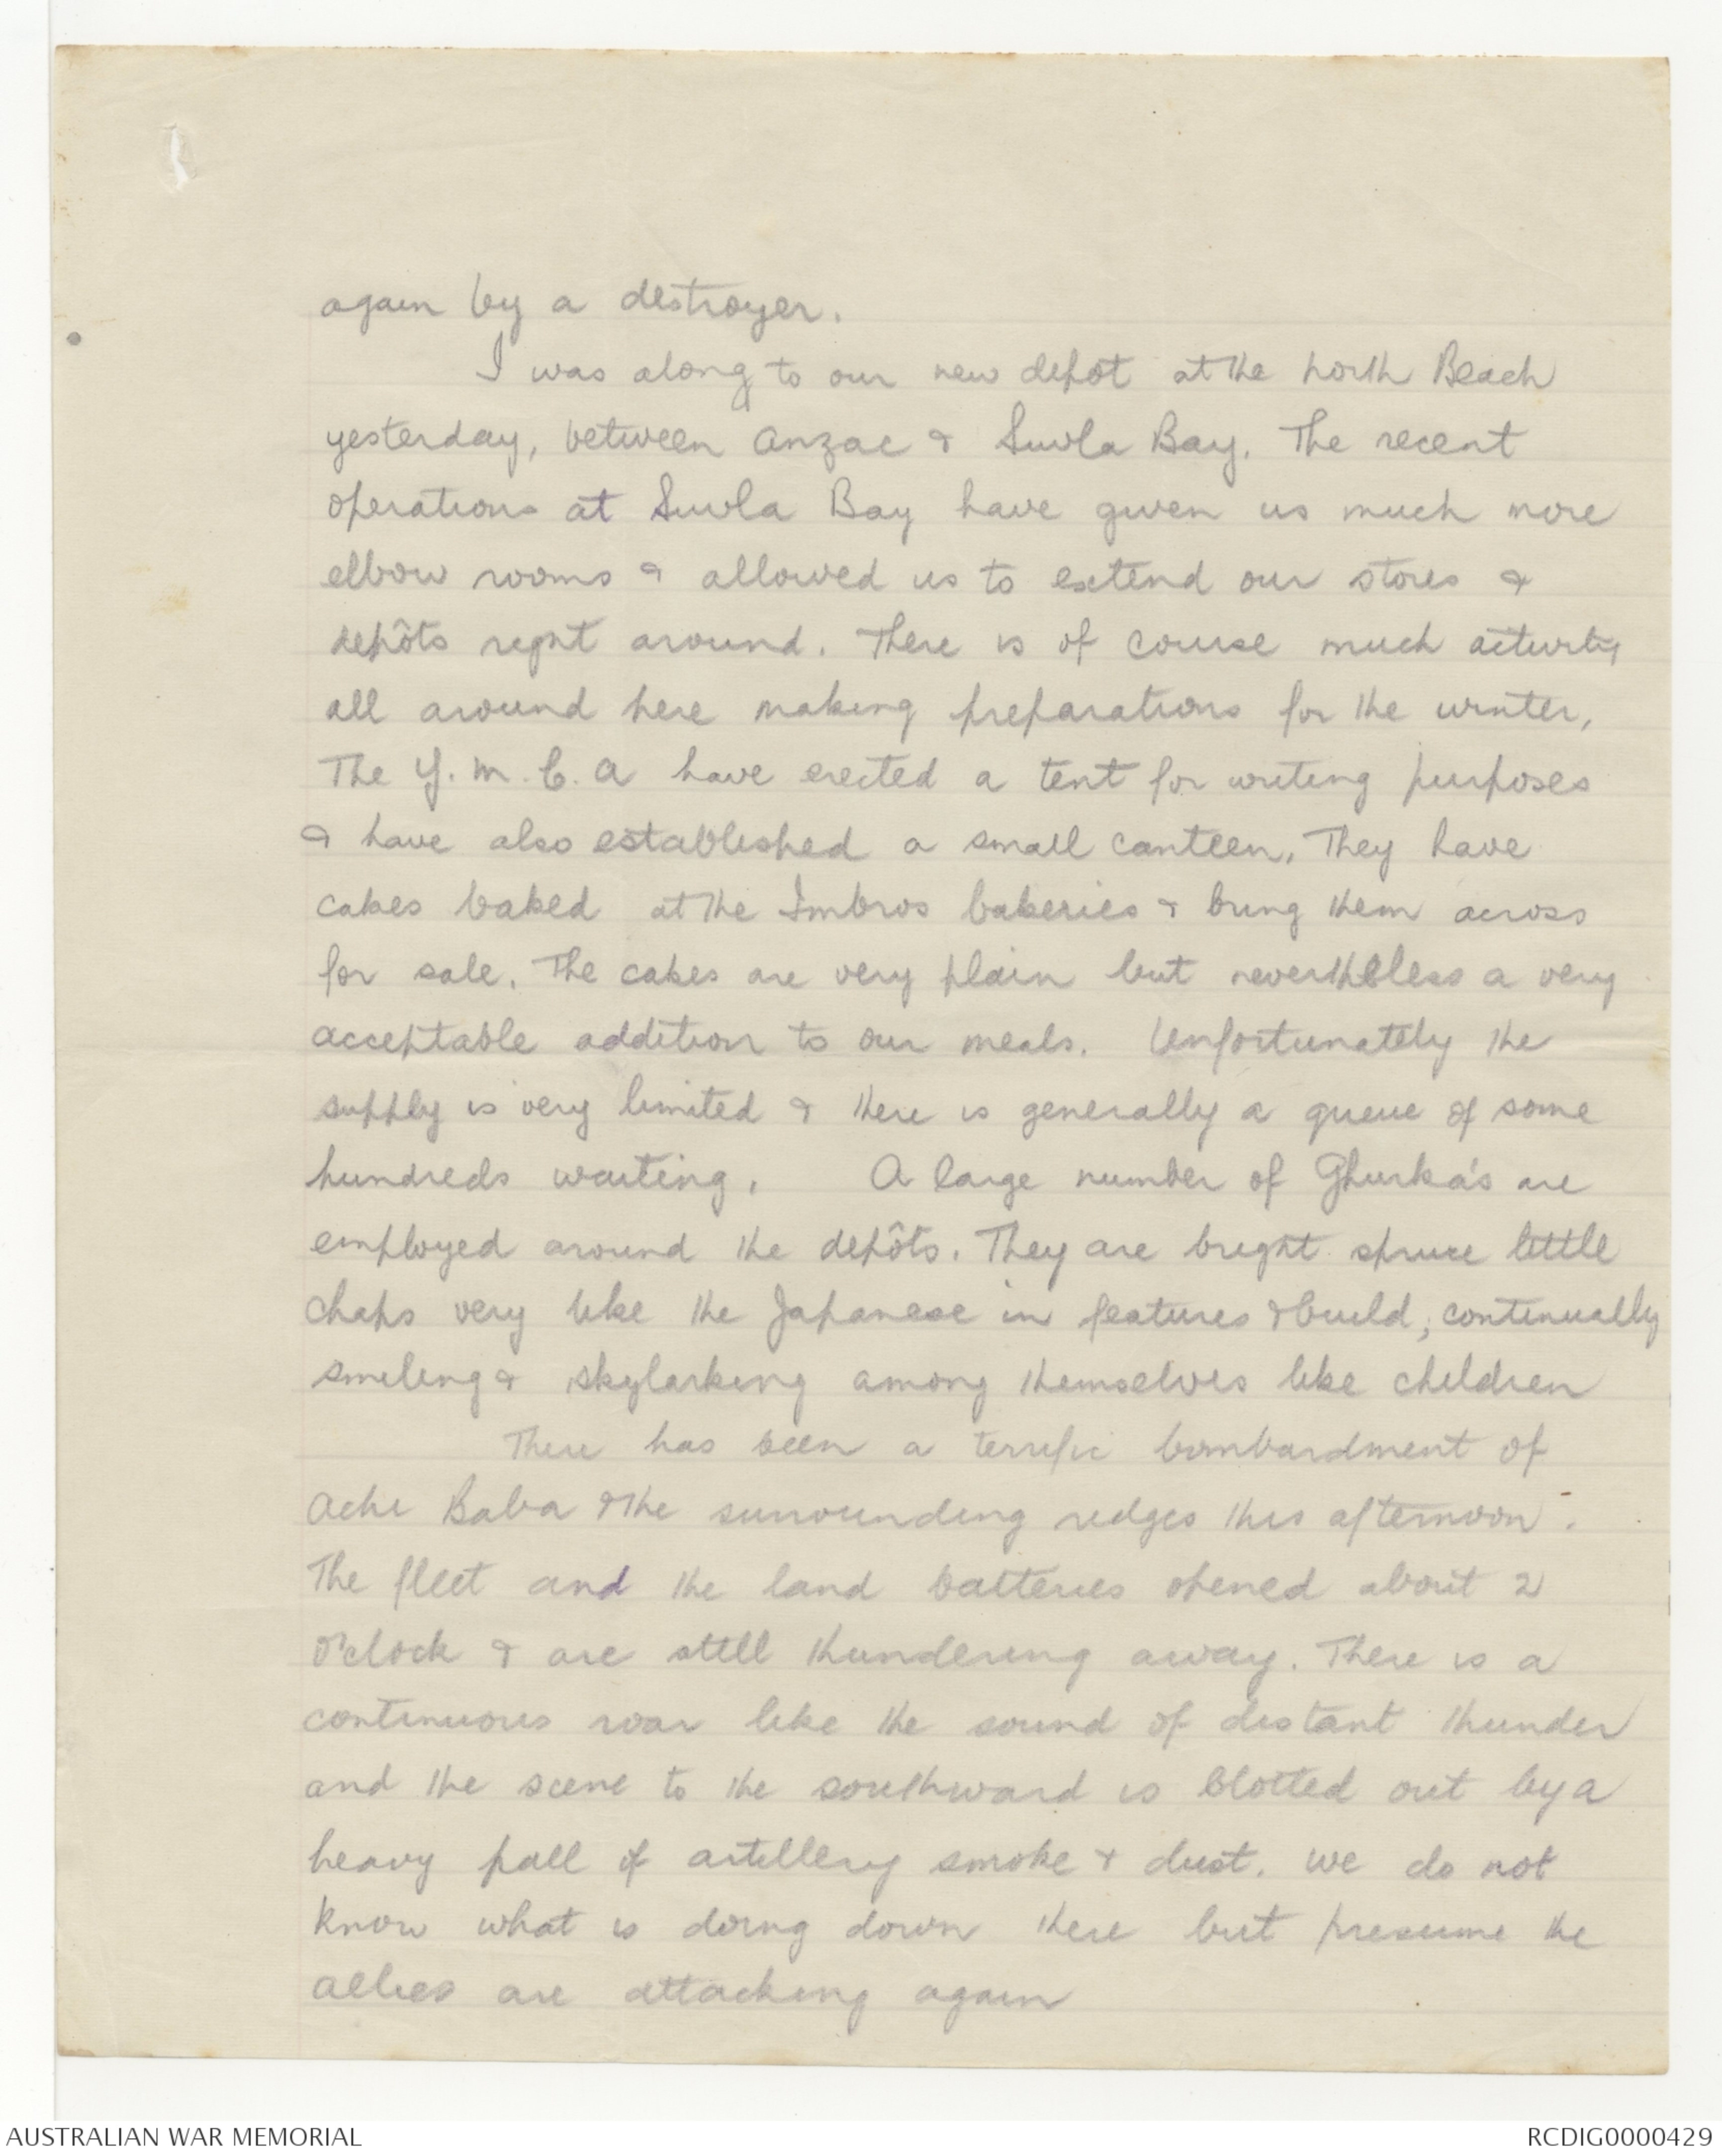 again by a destroyer.
I was along to our new depôt at the north Beach
yesterday, between Anzac & Suvla Bay. The recent
operations at Suvla Bay have given us much more
elbow rooms & allowed us to extend our stores &
depôts right around. There is of course much activity
all around here making preparations for the winter,
The Y. M. C. A have erected a tent for writing purposes
& have also established a small canteen, They have
cakes baked at the Imbros bakeries & bring them across
for sale. The cakes are very plain but nevertheless a very
acceptable addition to our meals. Unfortunately the
supply is very limited & there is generally a queue of some
hundreds waiting. A large number of Ghurka's are
employed around the depôts. They are bright spruce little
chaps very like the Japanese in features & build, continually
smiling & skylarking among themselves like children
There has been a terrific bombardment of
Achi Baba & the surrounding ridges this afternoon.
The fleet and the land batteries opened about 2
O'clock & are still thundering away. There is a
continuous roar like the sound of distant thunder
and the scene to the southward is blotted out by a
heavy pall of artillery smoke & dust. We do not
know what is doing down there but presume the
allies are attacking again
AUSTRALIAN WAR MEMORIAL
RCDIG0000429